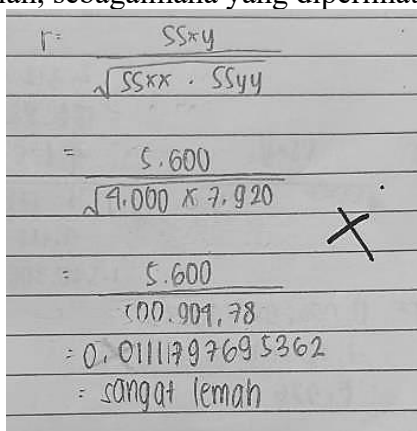 sebagaimana yang
r = SSxy
√SSxx . SSyy
= 5.600
√4.000 x 7.920
= 5.600
500.904,78
= 0.0111797695362
= sangat lemah